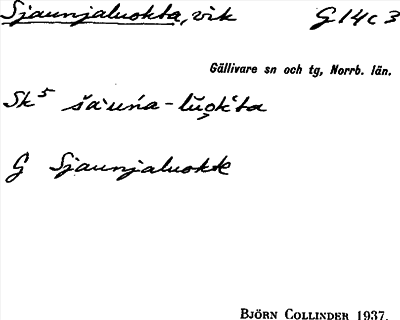 Sjaunjaluokta, vik G 14 c 3
Gällivare sn och tg, Norrb. län.
Sk⁵ šaˋuńa-lŭo̧kʻta
G Sjaunjaluokk
BJÖRN COLLINDER 1937.